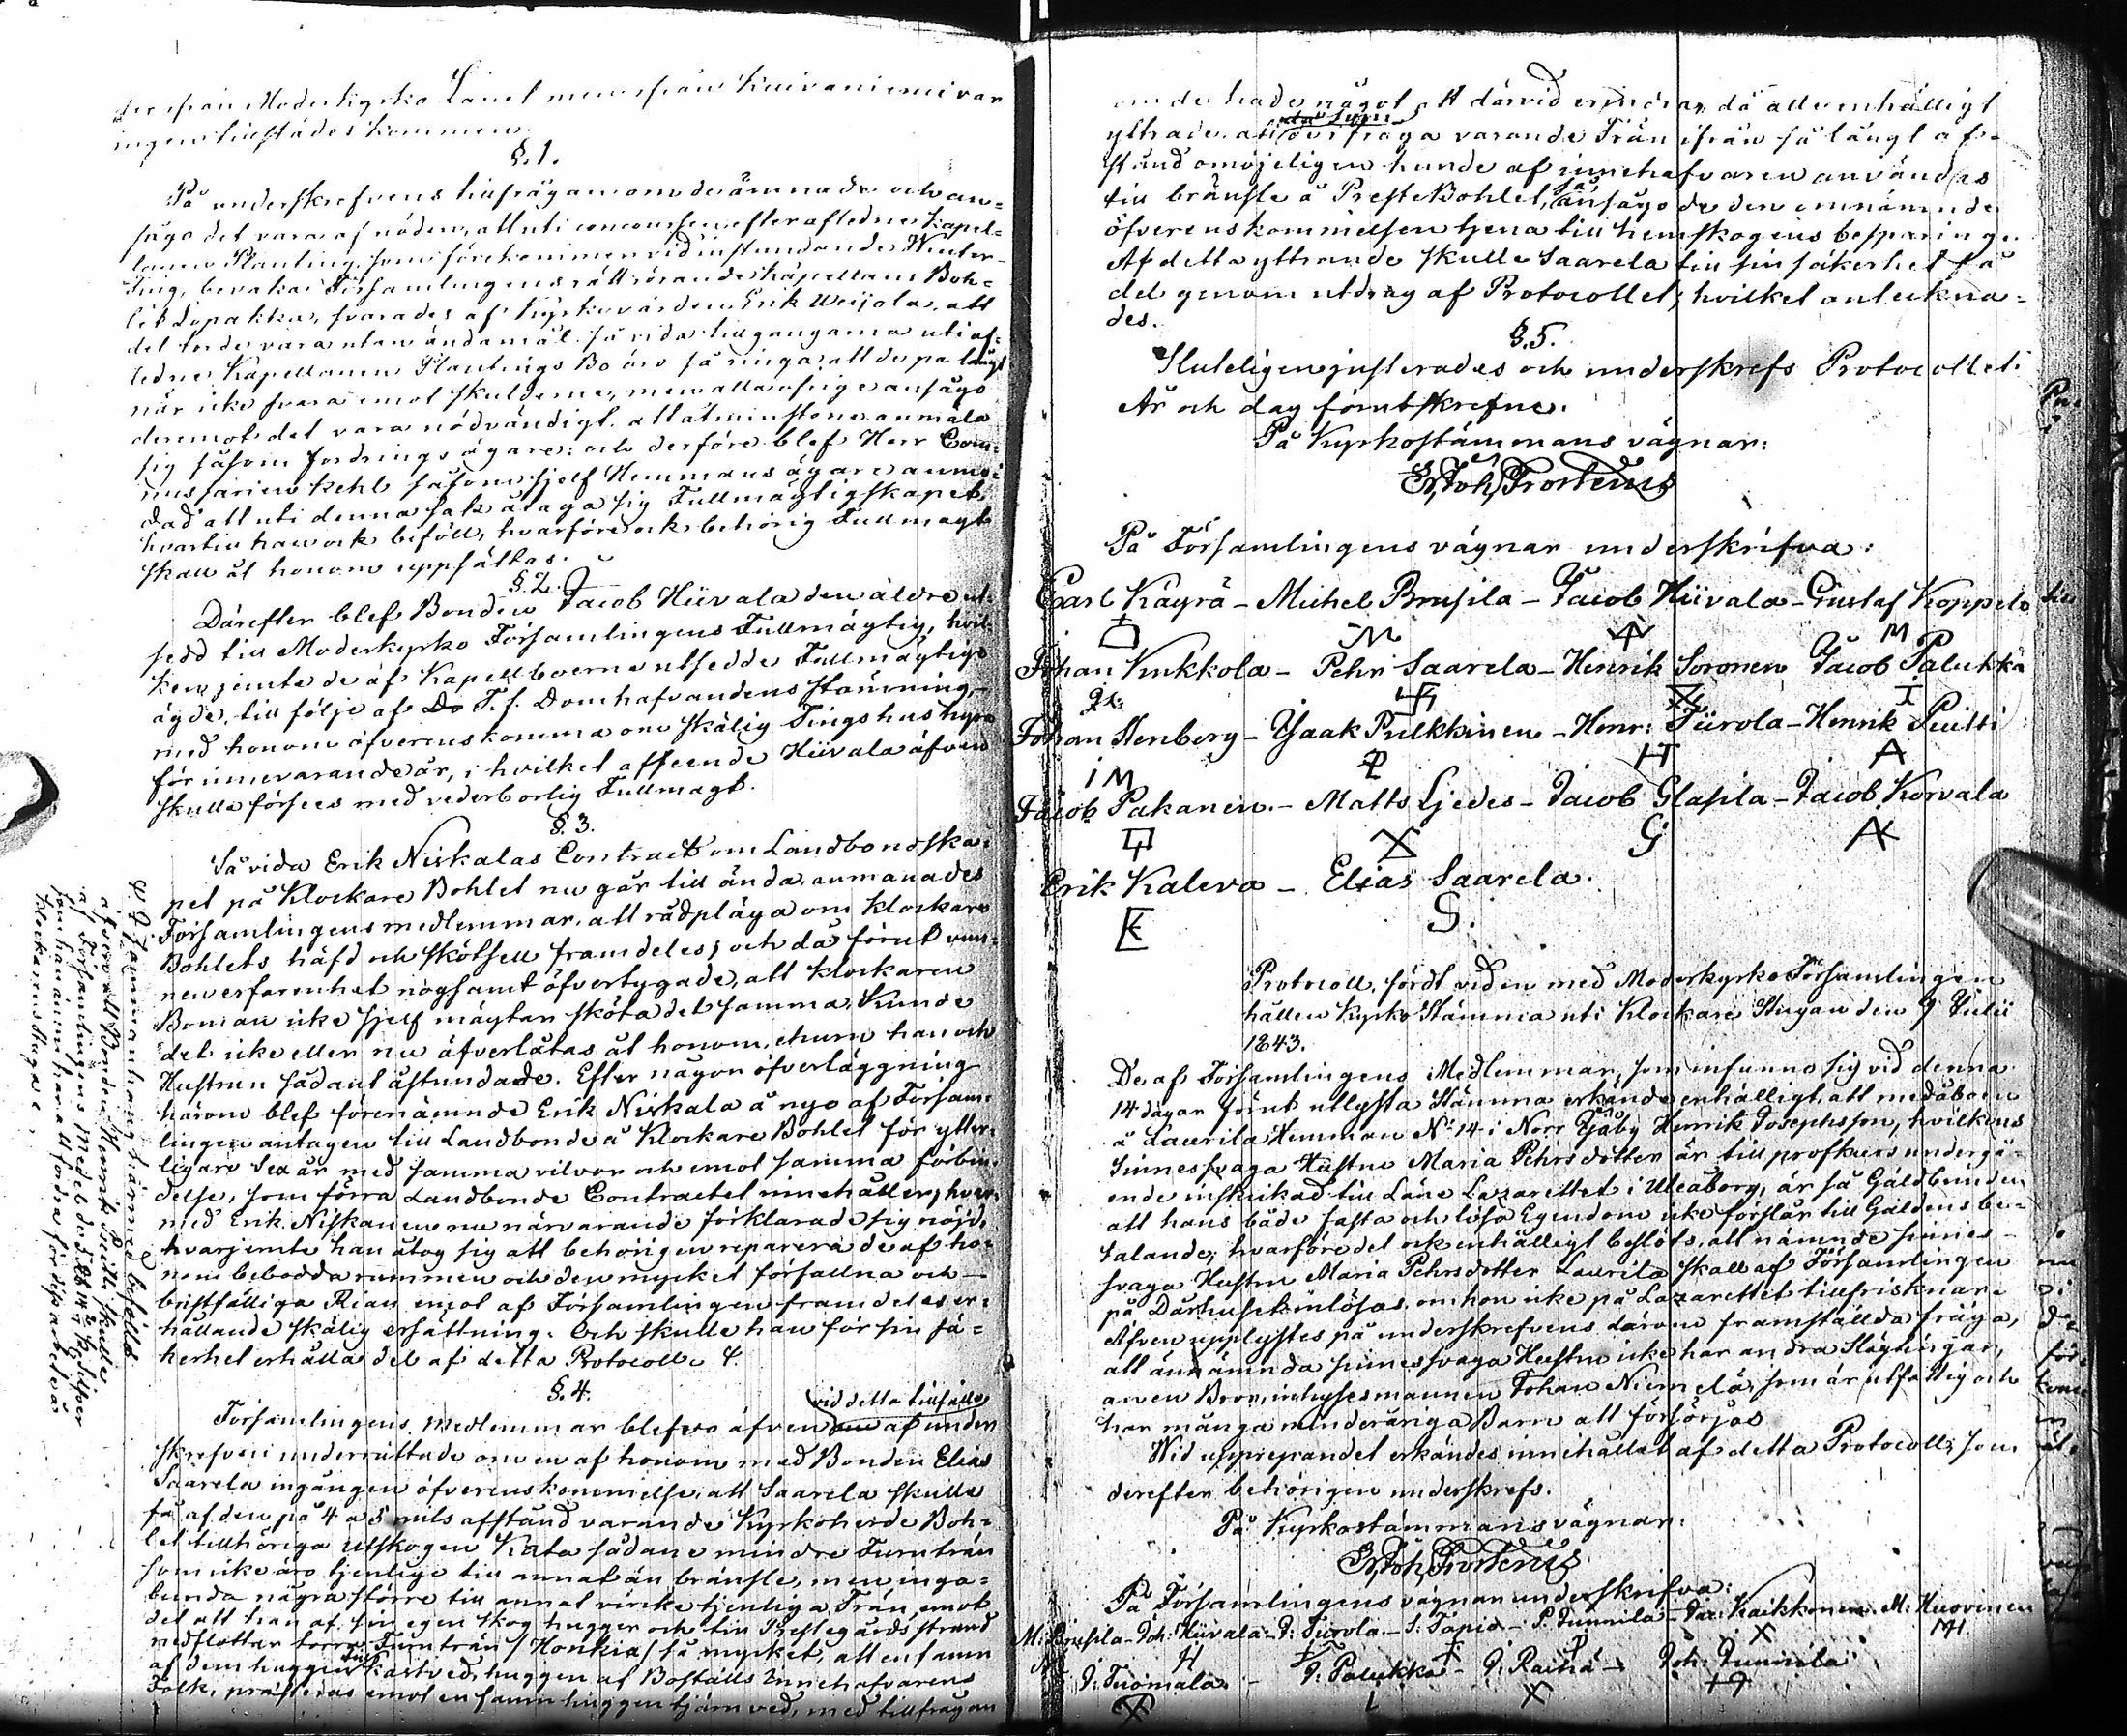 ser ifrån Moderkyrko Länet men ifrån Kuivaniemi var
ingen tillstädes kommen.
§.1.
På underskrefvens tillfrågan om de ämnade och an-
sågo det vara af nöden, att uti concoursen efter aflednes Kapel-
lanen Planting, som förekommer vid instundande Winter-
Ting, bevaka Församlingens rätt rörande Kapellans Boh-
let Lopakka, svarades af Kyrkovärden Erik Weijola, att
det torde vara utan ändamål så vida tillgångarna uti af-
lednes Kapellanen Plantings Bo äro så ringa, att de på långt
när icke svara emot skulderne, men alla öfrige ansågo
deremot det vara nödvändigt, att åtminstone anmäla
sig såsom fordringsägare; och derföre blef Herr Com-
missarien Kehl såsom sjelf Hemmans ägare anmo-
dad att uti denna sak åtaga sig Fullmägtigskapet,
hvartill han ock beföll, hvarföre ock behörig Fullmagt
skall åt honom uppsättas.
§.2.
Därefter blef Bonden Jacob Hiivala den äldre ut-
sedd till Moderkyrko Församlingens Fullmägtig, hvil-
ken jemte de af Kapellboerne utsedde Fullmägtige
ägde, till följe af Do T.f. Domhafvandens stämning,
med honom öfverenskomma om skälig Tingshushyra
för innevarande år, i hvilket afseende Hiivala äfven
skulle förses med vederborlig Fullmagt.
§.3.
Så vida Erik Niskalas Contract om Landbondska-
pet på Klockare Bohlet nu går till ända, anmanades
Församlingens medlemmar, att rådpläga om Klockare
Bohlets häfd och skötsell framdeles; och då förut vun-
nen erfarenhet nogsamt öfvertygade, att Klockaren
Boman icke sjelf mägtar sköta det samma, Kunde
det icke eller nu äfverlåtas åt honom, ehuru han och
Hustrun sådant åstundade. Efter någon öfverläggning
härom blef förenämnde Erik Niskala å nyo af Försam-
lingen antagen till Landbonde å Klockare Bohlet för ytter-
ligare Sex år med samma vilvor och emot samma förbin-
delse, som förra Landbonde Contractet innehåller; hvar-
med Erik Niskanen nu närvarande förklarade sig nöjd,
hvarjemte han åtog sig att behörigen reparera de af ho-
nom bebodda rummen och den mycket förfallna och
bristfälliga Rian emot af Församlingen framdeles er-
hållande skälig ersättning. Och skulle han för sin sä-
kerhet erhålla del af detta Protocoll. ¤.
§.4.
Församlingens medlemmar blefvo äfven vid detta tillfälle af under
skrefven underrättade om en af honom med Bonden Elias
Saarela ingången öfverenskommelse, att Saarela skulle
få af den på 4 a 5 mils afstånd varande Kyrkoherde Boh-
let tillhöriga utskogen Kata sådane mindre Furuträn
som icke äro tjenlige till annat än bränsle, men inga-
lunda några större till annat virke tjenliga Trän, emot
det att han af sin egen skog hugger och till Prestegårds strand
nedflottar torra Furuträn /Honkia/ så mycket, att en famn
af dem huggen till kastved, huggen af Boställs Innehafvarens
Folk, presteras emot en famn huggen tjärnved, med tillfrågan
¤. I sammanhang härmed befölld
äfven att Bonden Henrik Peitti skulle
af Församlingens medel
som han ännu har att fordra för dess arbete å
Klockarens Stuga.
om de hade något att därvid erindra, då alle enhälligt
yttrade. att i fråga varande Trän ifrån så långt af-
stånd omöjeligen kunde af innehafvaren användas
till bränsle å Preste Bohlet, ansågo de den omnämnde
öfverenskommelsen tjena till hemskogens bespparing.
Af detta yttrande skulle Saarela till sin säkerhet få
del genom utdrag af Protocollet; hvilket antekna-
des.
§.5.
Sluteligen justerades och underskrefs Protocollet.
År och dag förutskrefne.
På Kyrkostämmans vägnar:
Er. Joh. Frosterus
På Församlingens vägnar underskrifva:
Carl Käyrä – Michel Brusila – Jacob Hiivala – Gustaf Koppelo
M M
Johan Kukkola – Pehr Saarela – Henrik Soronen Jacob Palukka
Johan Stenberg – Isaak Pulkkinen – Henr: Tiirola – Henrik Peitti
IM P HT A
Jacob Pakanen. – Matts Ljedes – Jacob Glasila – Jacob Korvala
G AK
Erik Kaleva – Elias Saarela.
E S.
Protocoll, fördt vid en med Moderkyrko Församlingen
hållen Kyrko Stämma uti Klockare Stugan den 9 Julii
1843.
De af Församlingens Medlemmar, som infunno sig vid denna
14 dagar förut utlysta Stämma erkände enhälligt, att medåboen
å Laurila Hemman No 14 i Norr Ijo by Henrik Josephsson, hvilkens
Sinnessvaga Hustru Maria Pehrsdotter är till profkurs undergå-
ende inskikad till Läne Lazarettet i Uleåborg, är så Gäldbunden
att hans både fasta och lösa Egendom icke förslår till Gäldens be-
talande; hvarföre det ock enhälligt beslöts, att nämnde sinnes-
svaga Hustru Maria Pehrsdotter Laurila skall af Församlingen
på Dårhuset inlösas, om hon icke på Lazarettet tillfrisknar.
Äfven upplystes på underskrefvens därom framställda fråga,
att ännämnda sinnessvaga Hustru icke har andra Slägtingar,
än en Bror, inhysesmannen Johan Niemelä, som är utfattig och
har många minderåriga Barn att försörjas.
Wid upprepandet erkändes innehållet af detta Protocoll, som
derefter behörigen underskrefs.
På Kyrkostämmans vägnar:
Er. Joh. Frosterus
På Församlingens vägnar underskrifva:
M: Brusila – Joh: Hiivala – J: Tiirola – S: Tapio – P. Tunnila – Kaikkonen. M: Huovinen
J: Tuomala – J: Palukka – J: Raiha – Joh: Tunnila